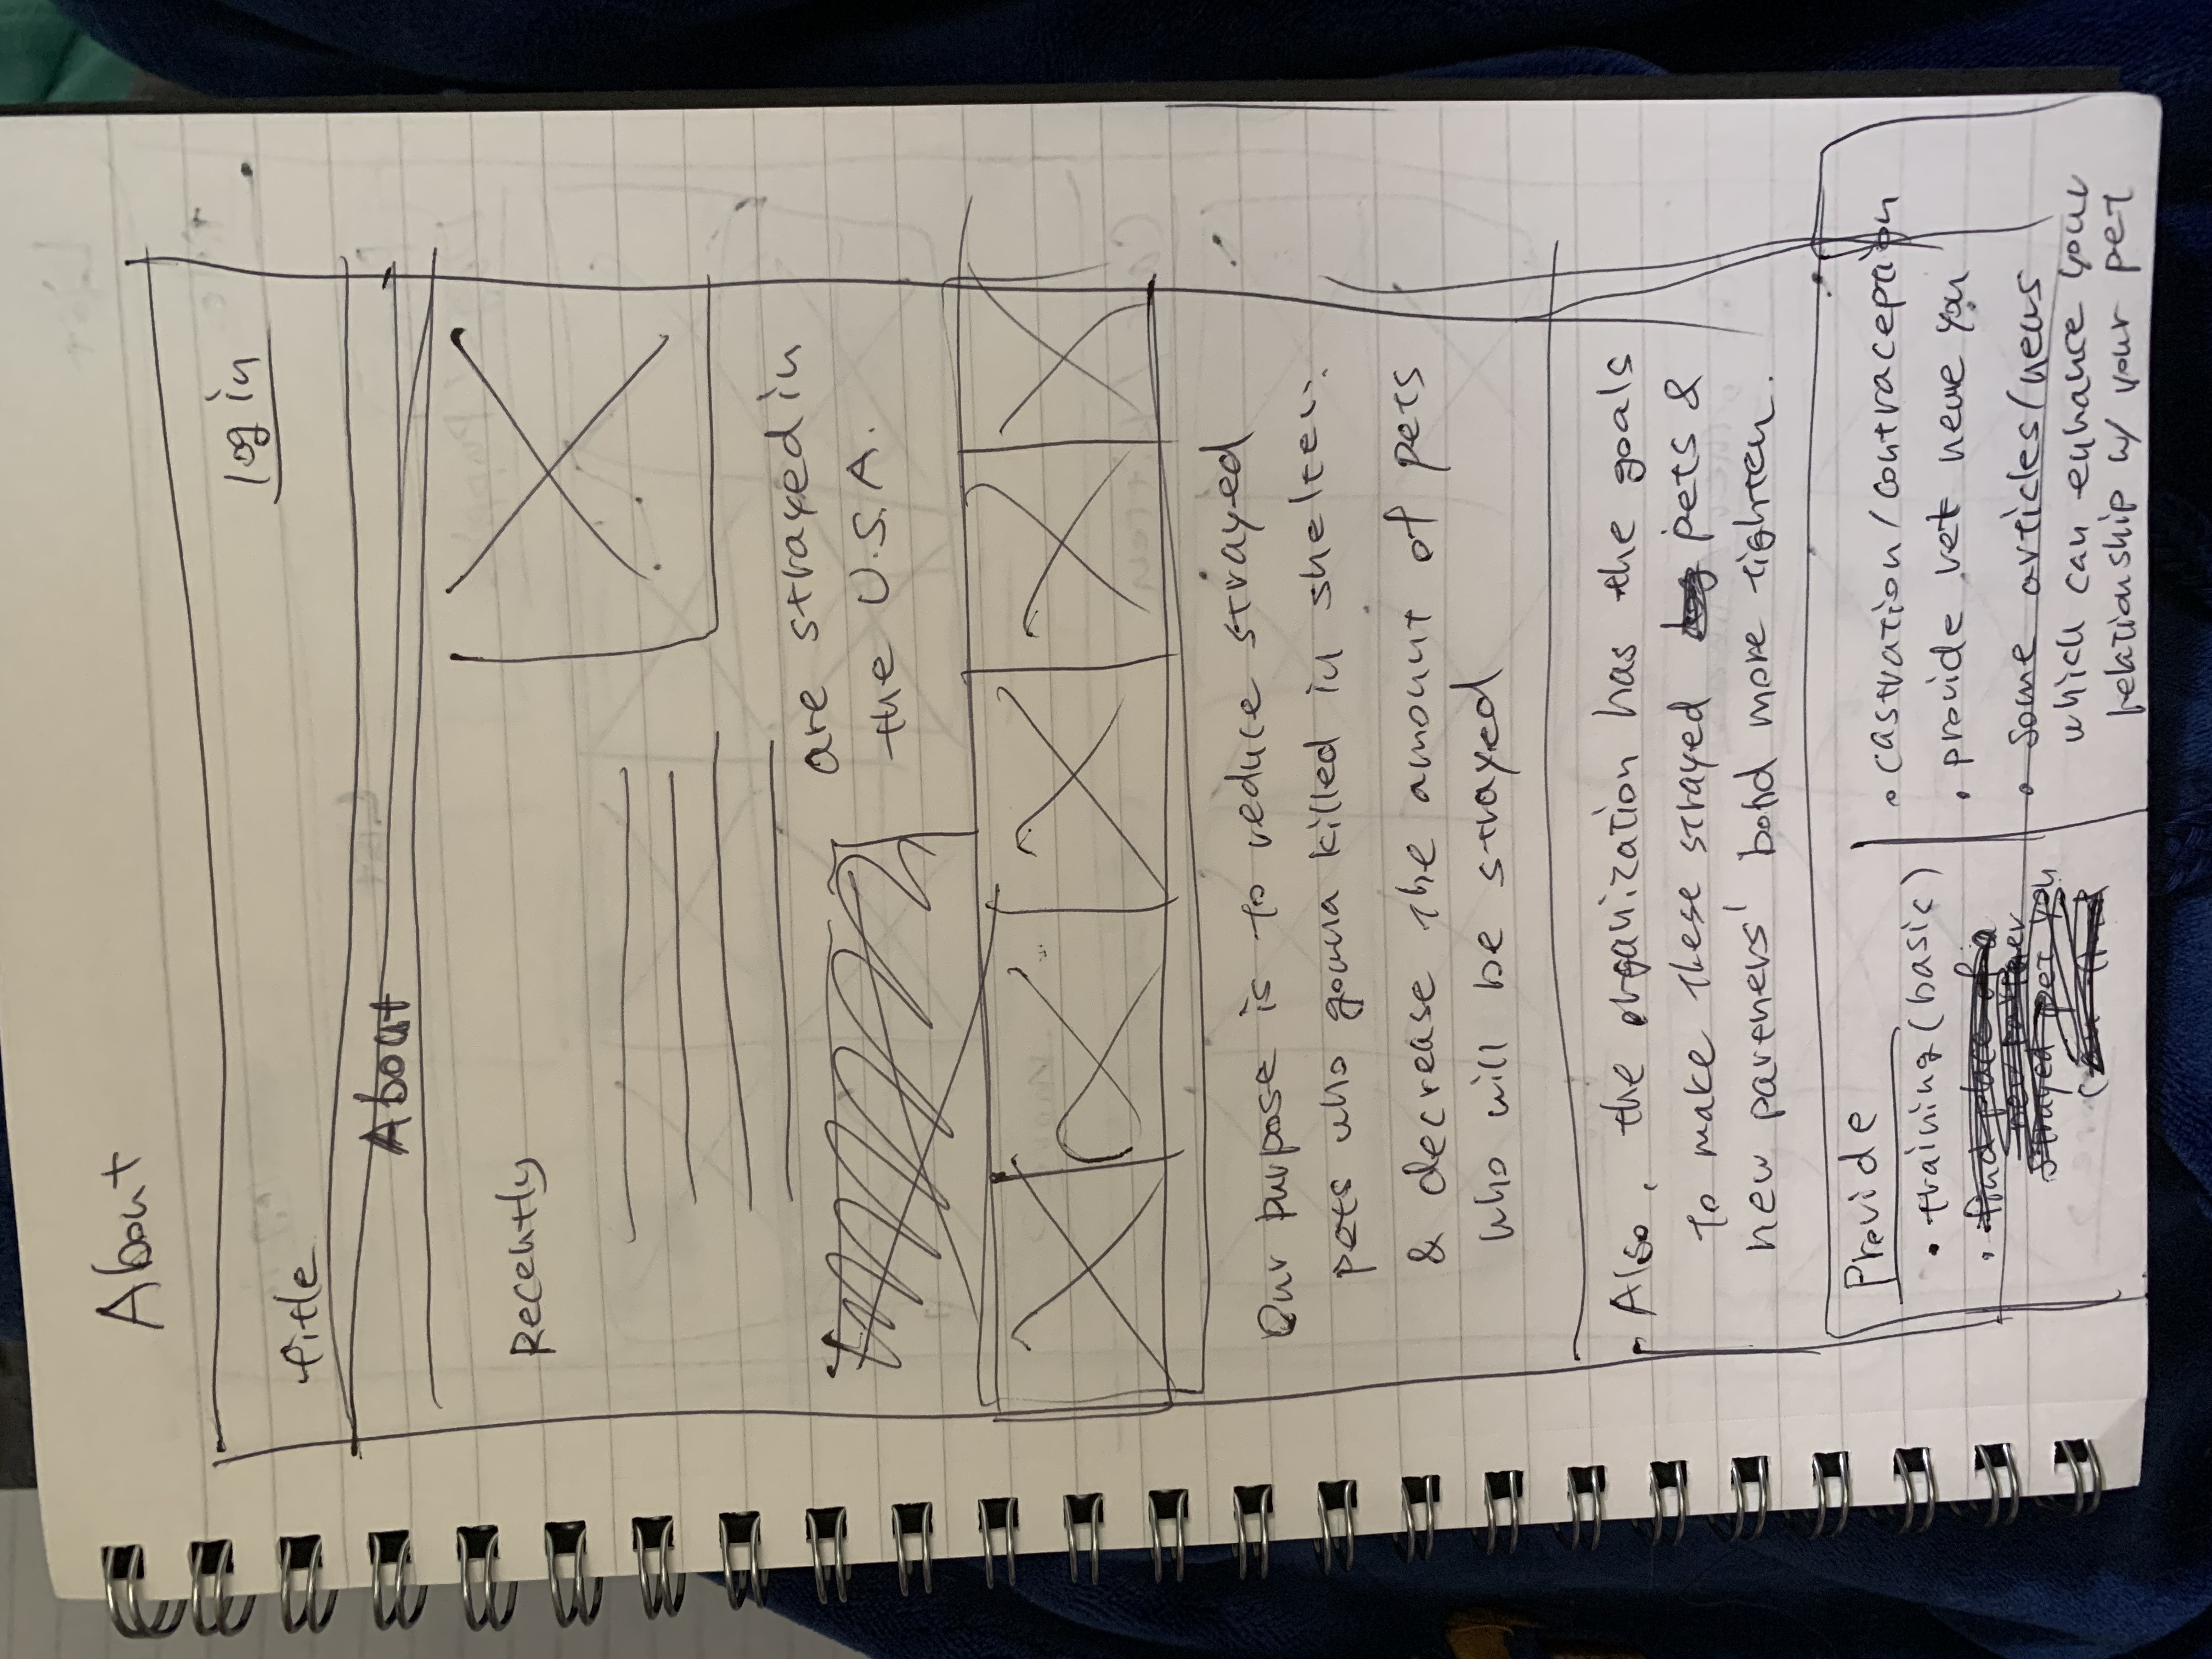 About
log in
title
About
Recently
are strayed in
the U.S.A.
Our purpose is to reduce strayed
pets who gonna killed in shelter.
& decrease the amount of pets
who will be strayed
Also, the organization has the goals
to make these strayed pets &
new partners' bond more tighten.
Provide
• training (basic)
• find place of a
new partner
strayed pet you
can find
• castration/contraception
• provide vet neue you
• some articles/news
which can enhance your
relationship w/ your pet